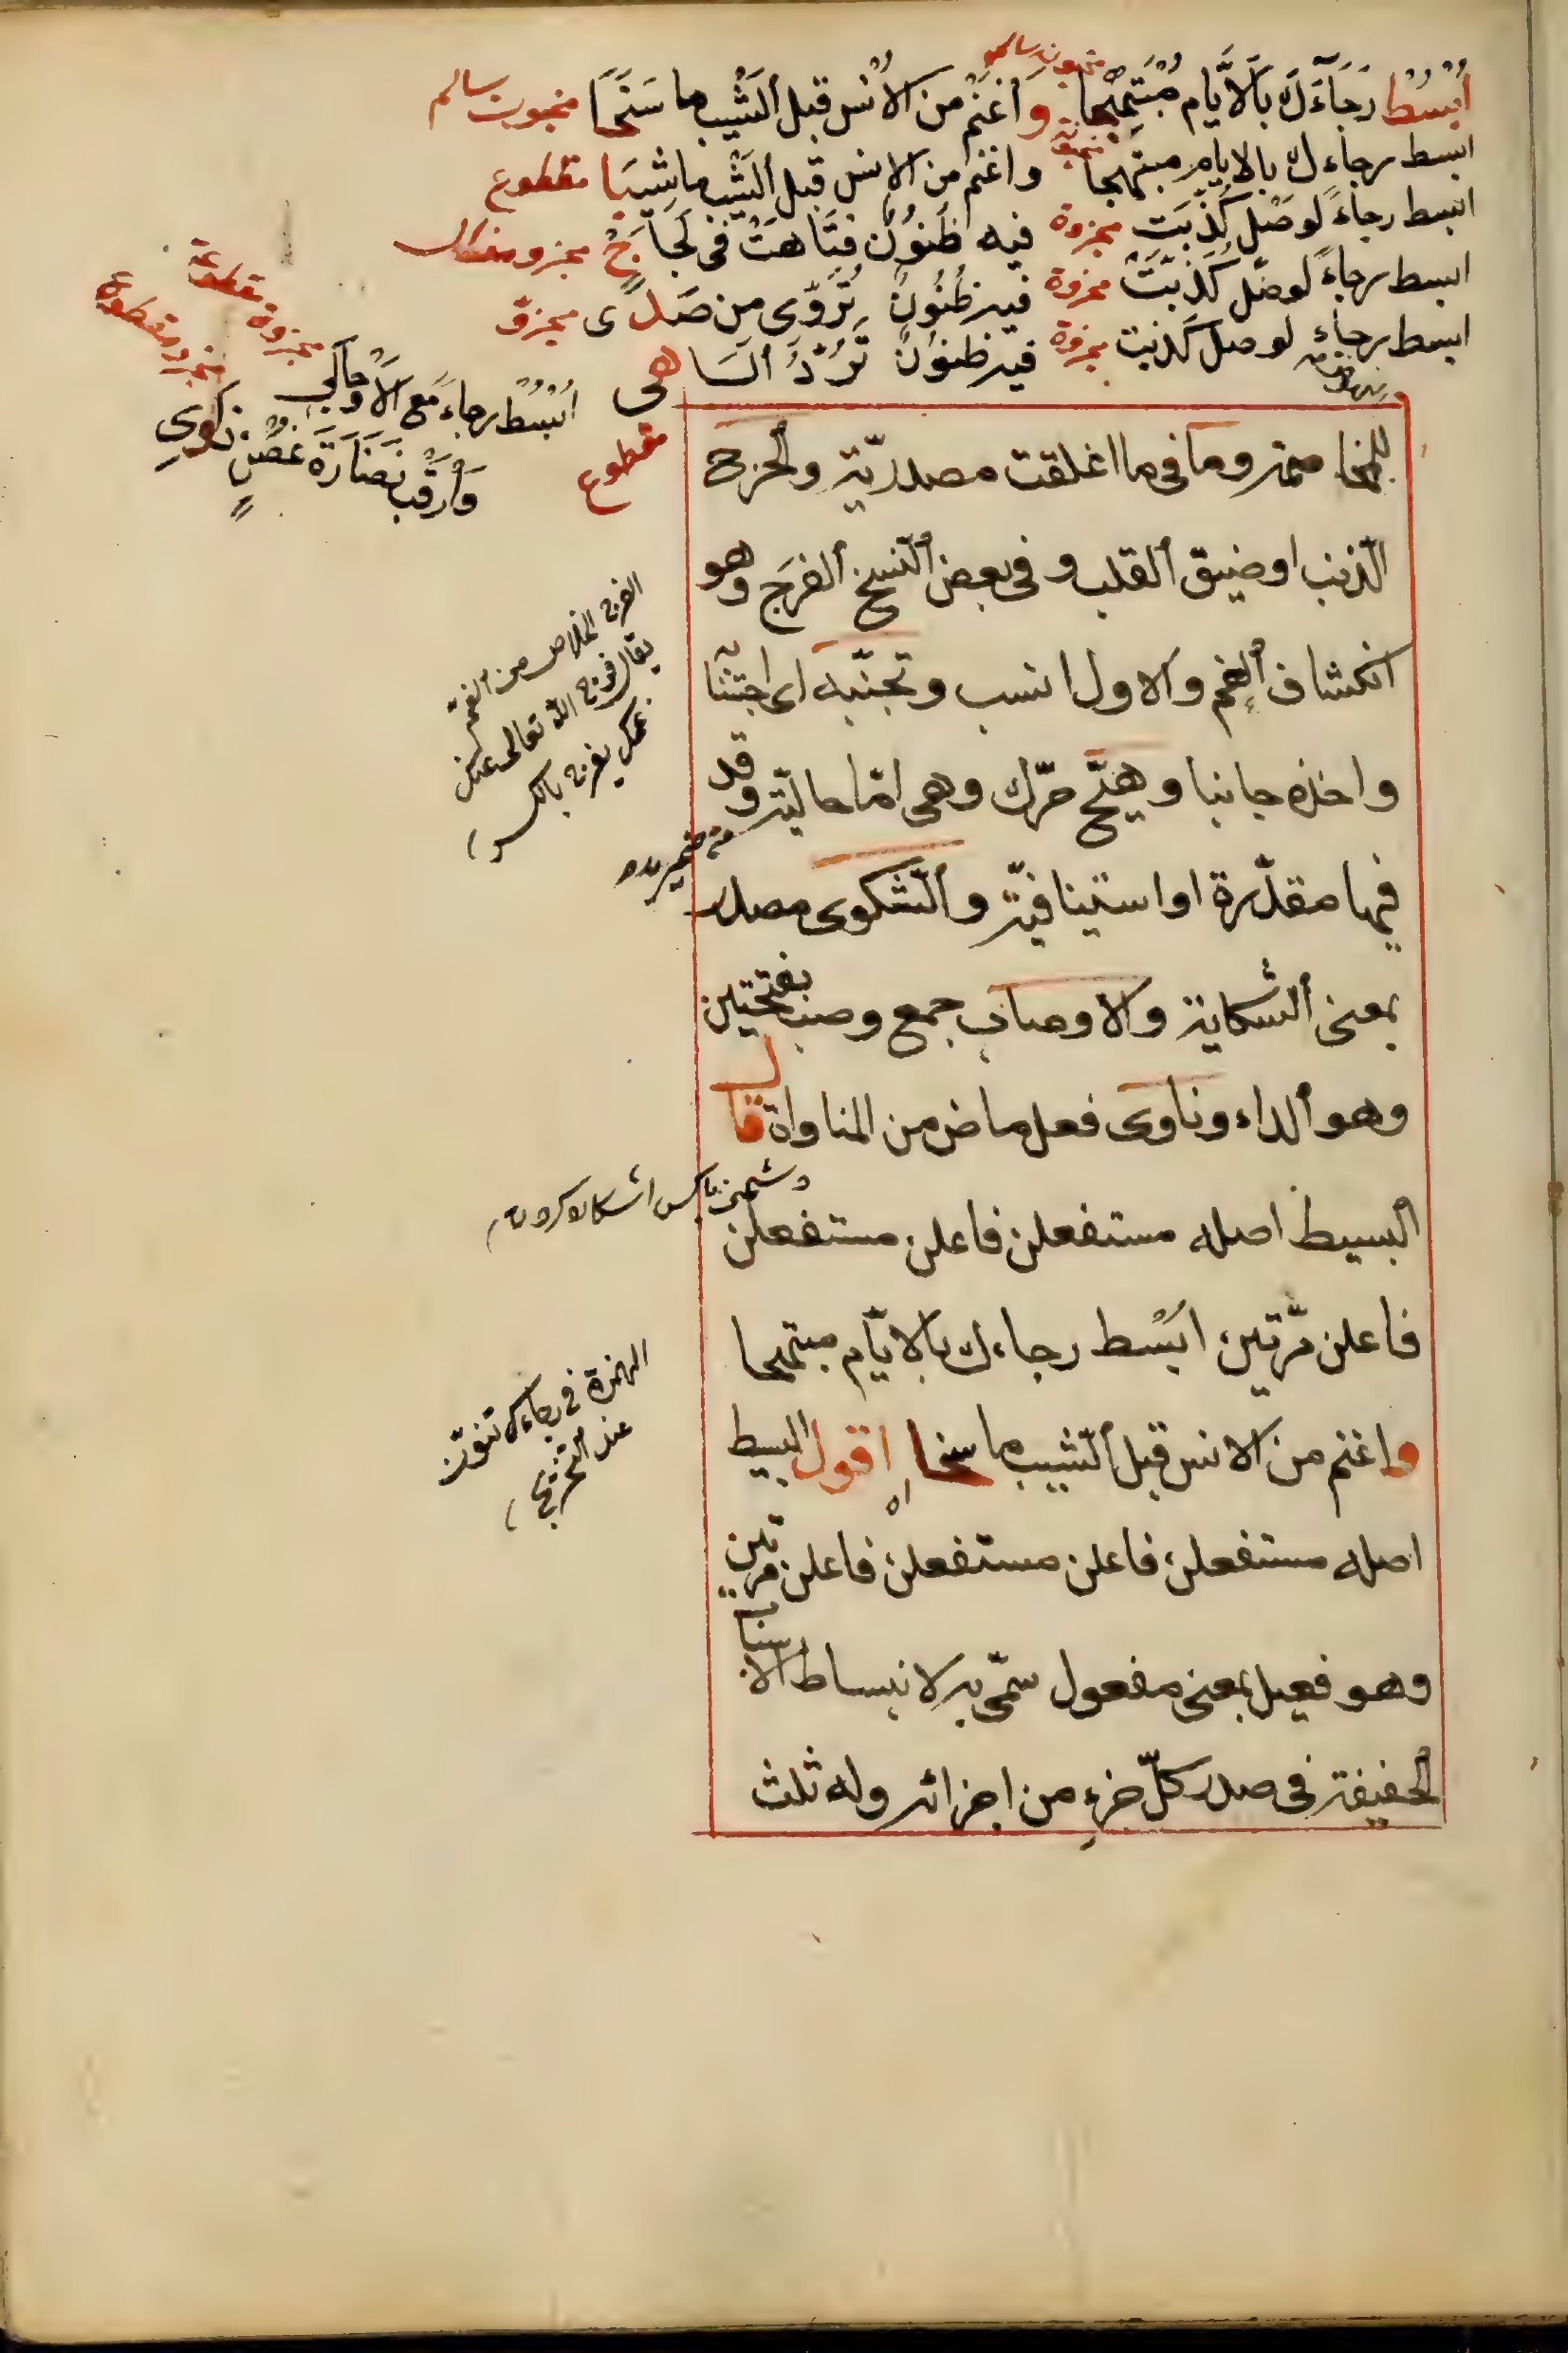 اُبْسُطْ رَجَآءَكَ بِالْاَيَّامِ مُبْتَهِجًا وَاغْنَمْ من الاُنْس قبل اَلشَّيْب ما سَنَحَا مخبون سالم
ابسط رجاءك بالايام مبتهجا واغنم من الانس قبل الشيب ما شِيبَا مقطوع
ابسط رجاءً لوصْلٍ كُذِّبَت مجزوة فيه ظَنُونٌ فتَاهَتْ فى لَجَاجٍ
ابسط رجاءً لوصل كُذِّبَتْ مجزوة فيه ظُنُونٌ تُرَوّى من صَدًى مجزوّ
ابسط رجاءً لوصل كذبت مجزوة فيه ظنون تَرُدُّ السَاهى
مقطوع
اُبْسُطْ رجاءً مَع الاَ
وَارقُبْ نضَارَةَ غُصْنٍ
وما فى ما اغلقت مصدريّة والحرج
الذنب او ضيق القلب و فى بعض النسخ الفَرَج وهو
انكشاف الغم والاول انسب وتجنّبه اى اجتنبا
واخذه جانبا وهيّج حرّك وهى امّا حاليّة وقد
فيها مقدّرة او استينافيّة والشكوى مصدر
بمعنى الشكاية والاوصاب جمع وصب بفتحتين
وهو الداء وناوى فعل ماض من المناواة قال
البسيط اصله مستفعلن فاعلن مستفعلن
فاعلن مرّتين ابْسُط رجاءك بالايّام مبتهجا
واغنم من الانس قبل الشيب ما سنحا اه اقول البسيط
اصله مستفعلن فاعلن مستفعلن فاعلن مرتين
وهو فعيل بمعنى مفعول سمّى به لانبساط الاسباب
الخفيفة فى صدر كلّ جزءٍ من اجزائه وله ثلث
الفرج الخلاص من الغم
يقال فرج الله تعالى عنك
غمك يفرج بالكسر
الهمزة فى رجاءك تنوّن
عند التخريج